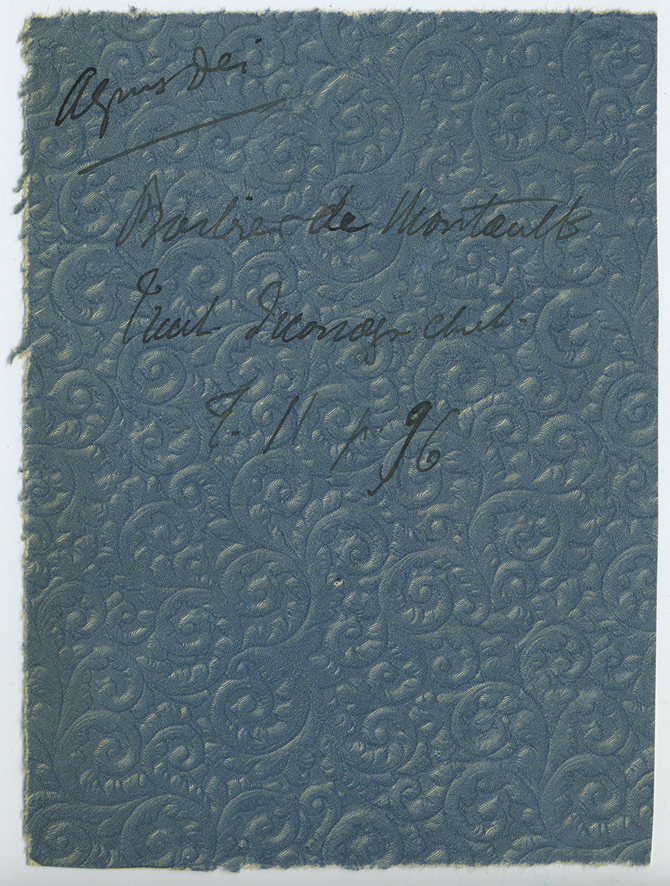 Agnus Dei
Barbier de Montault
Trait. Iconogr chret.
T. II p. 96